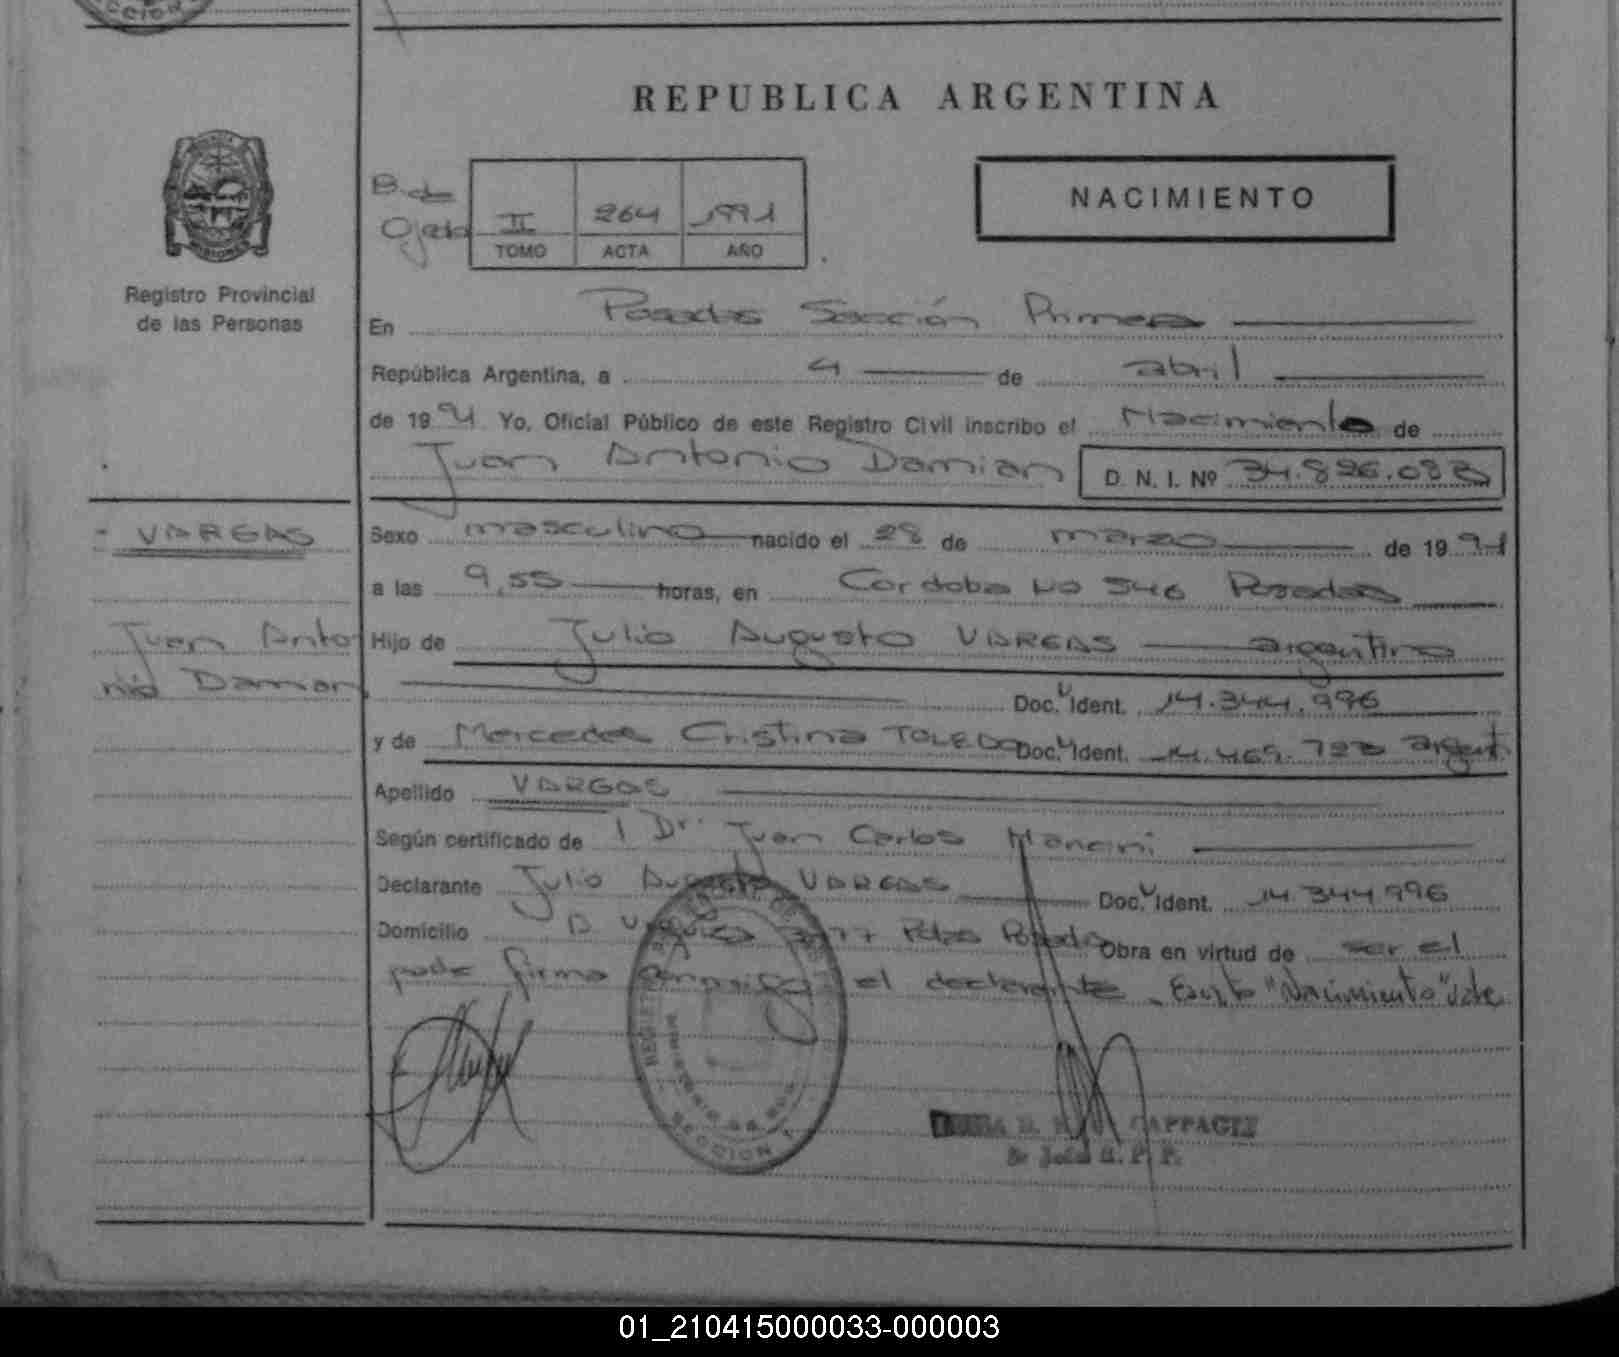 REPUBLICA ARGENTINA
B. de
Ojeda
II 264 1991
TOMO ACTA AÑO
NACIMIENTO
Registro Provincial
de las Personas
En Posadas Sección Primera
República Argentina, a 4 de abril
de 1991 Yo, Oficial Público de este Registro Civil inscribo el Nacimiento de
Juan Antonio Damian D. N. I. Nº 34.896.083
- VARGAS
Juan Anto
nio Damian
Sexo masculino nacido el 28 de marzo de 1991
a las 9,55 horas, en Cordoba No 546 Posadas
Hijo de Julio Augusto VARGAS argentino
Doc. U Ident. 14.344.996
y de Mercedes Cristina TOLEDO Doc. U Ident. 14.469.723 argent.
Apellido VARGAS
Según certificado de l Dr. Juan Carlos Mancini
Declarante Julio Augusto VARGAS Doc. U Ident. 14.344.996
Domicilio B Posadas Obra en virtud de ser el
padre firma conmigo el declarante. Escrito "Nacimiento" vale
SECCION 1
CAPPAGLI
01_210415000033-000003